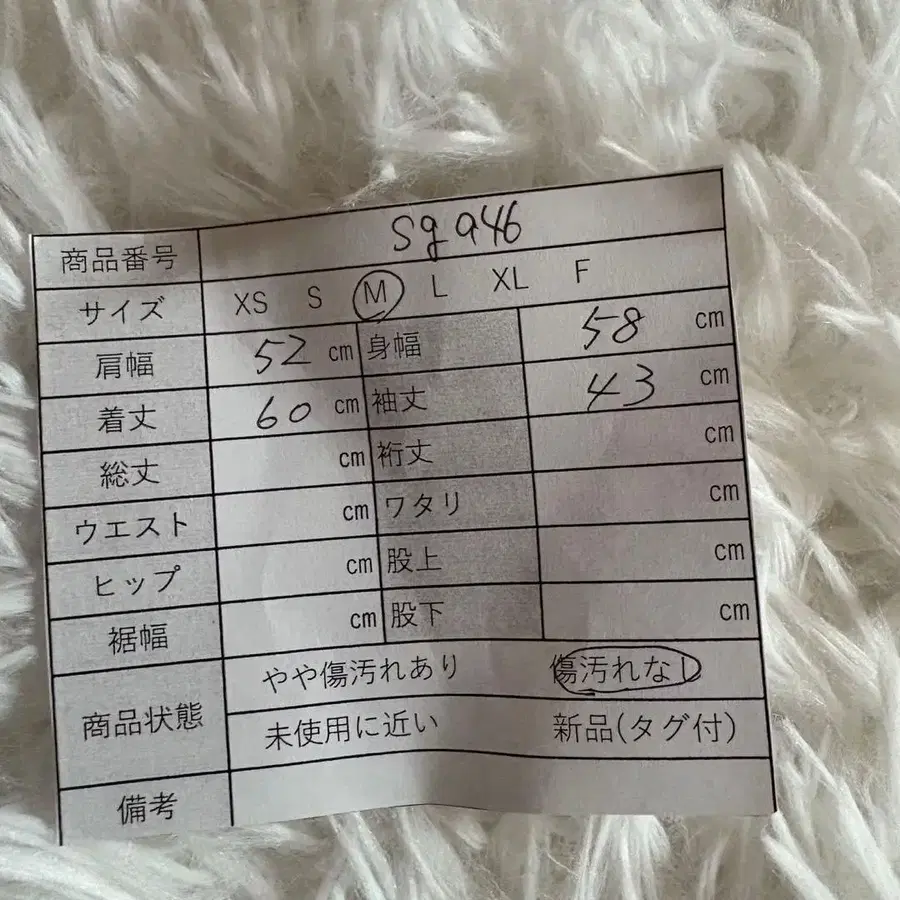 商品番号 sg a46
サイズ XS S M L XL F
肩幅 52 cm 身幅 58 cm
着丈 60 cm 袖丈 43 cm
総丈 cm 裄丈 cm
ウエスト cm ワタリ cm
ヒップ cm 股上 cm
裾幅 cm 股下 cm
商品状態 やや傷汚れあり 傷汚れなし
未使用に近い 新品(タグ付)
備考